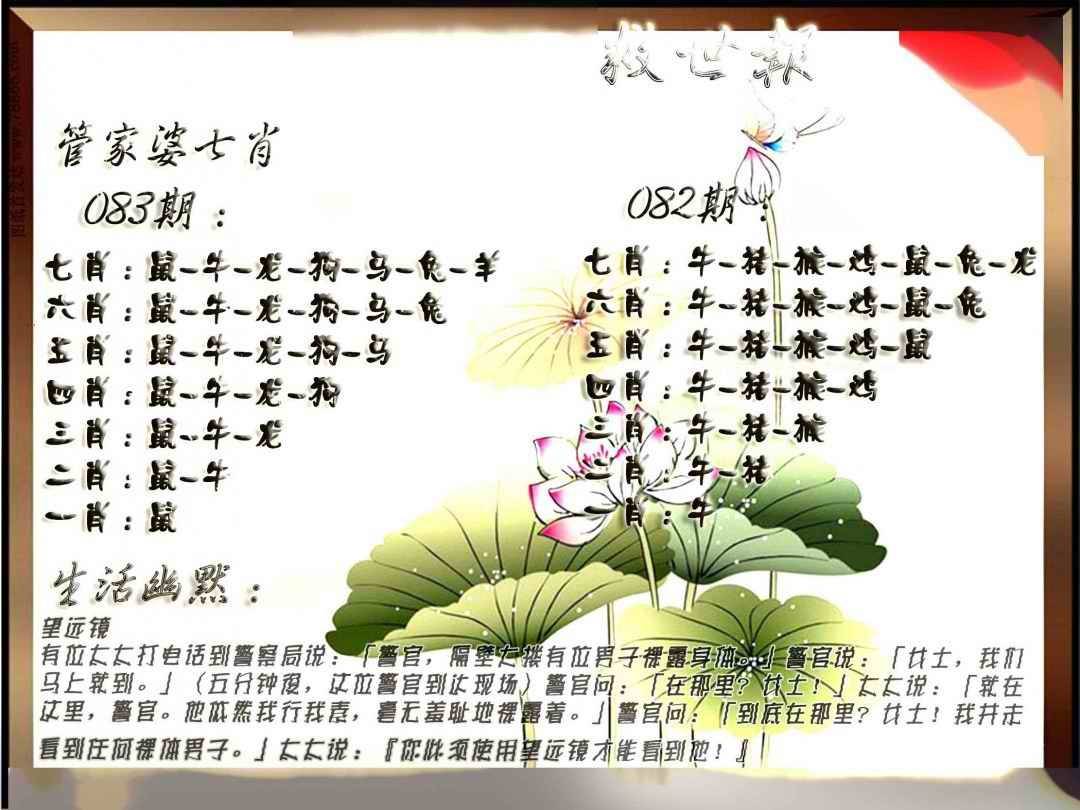 救世報
管家婆七肖
083期：
七肖：鼠-牛-龙-狗-马-兔-羊
六肖：鼠-牛-龙-狗-马-兔
五肖：鼠-牛-龙-狗-马
四肖：鼠-牛-龙-狗
三肖：鼠-牛-龙
二肖：鼠-牛
一肖：鼠
082期：
七肖：牛-猪-猴-鸡-鼠-兔-龙
六肖：牛-猪-猴-鸡-鼠-兔
五肖：牛-猪-猴-鸡-鼠
四肖：牛-猪-猴-鸡
三肖：牛-猪-猴
二肖：牛-猪
一肖：牛
生活幽默：
望远镜
有位太太打电话到警察局说：「警官，隔壁大楼有位男子裸露身体。」警官说：「女士，我们
马上就到。」（五分钟后，这位警官到达现场）警官问：「在那里？女士！」太太说：「就在
这里，警官。他依然我行我素，毫无羞耻地裸露着。」警官问：「到底在那里？女士！我并走
看到任何裸体男子。」太太说：『你必须使用望远镜才能看到他！』